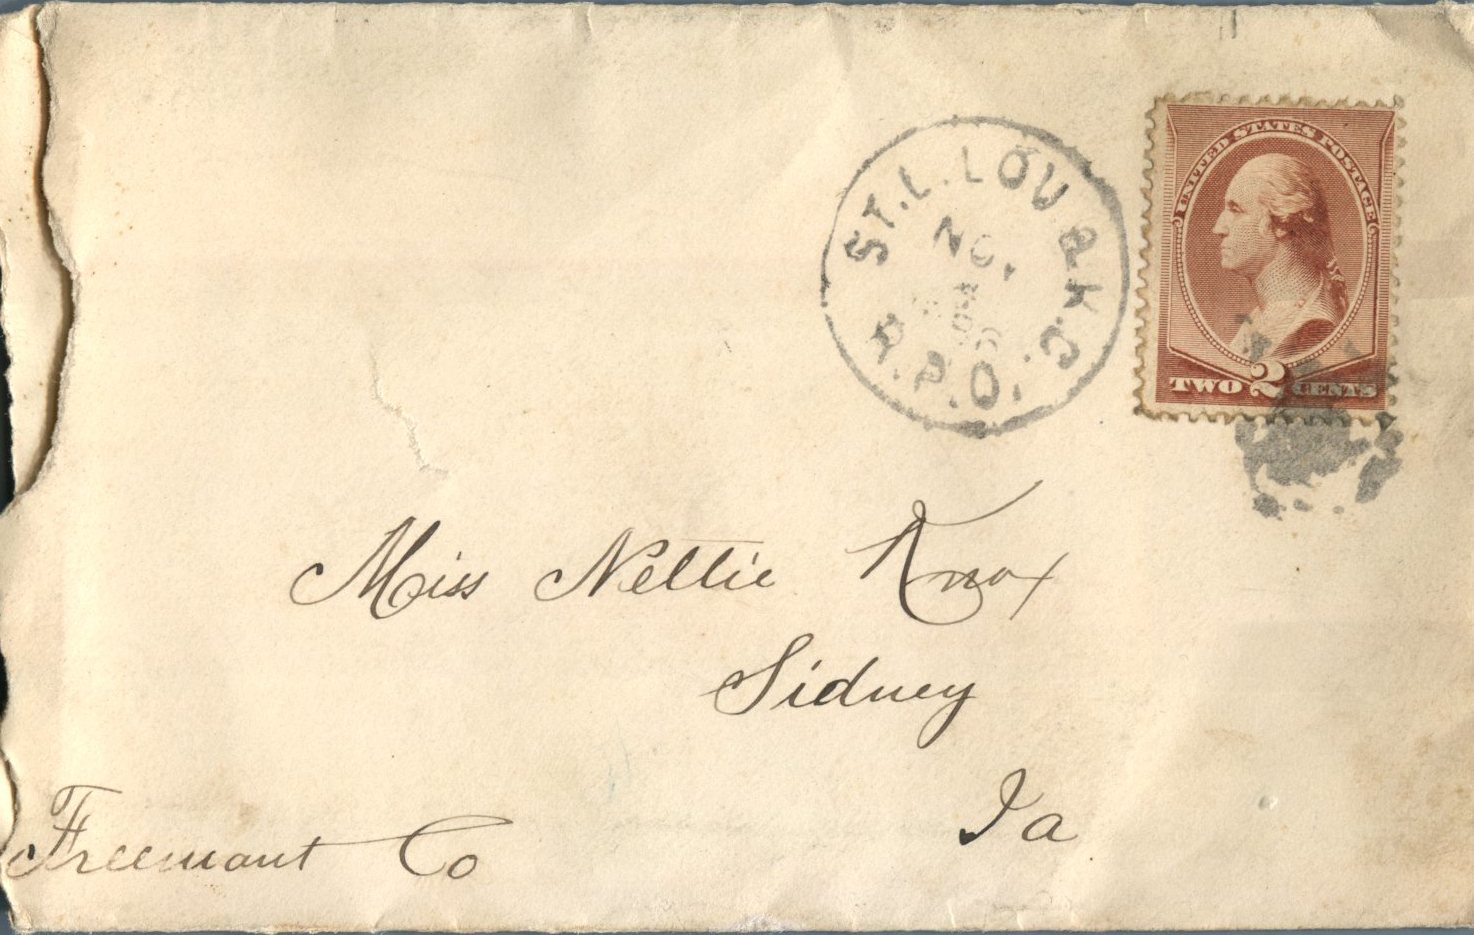 ST. L. LOU. & K.C.
R.P.O.
UNITED STATES POSTAGE
TWO 2 CENTS
Miss Nettie Knox
Sidney
Ia
Freemont Co